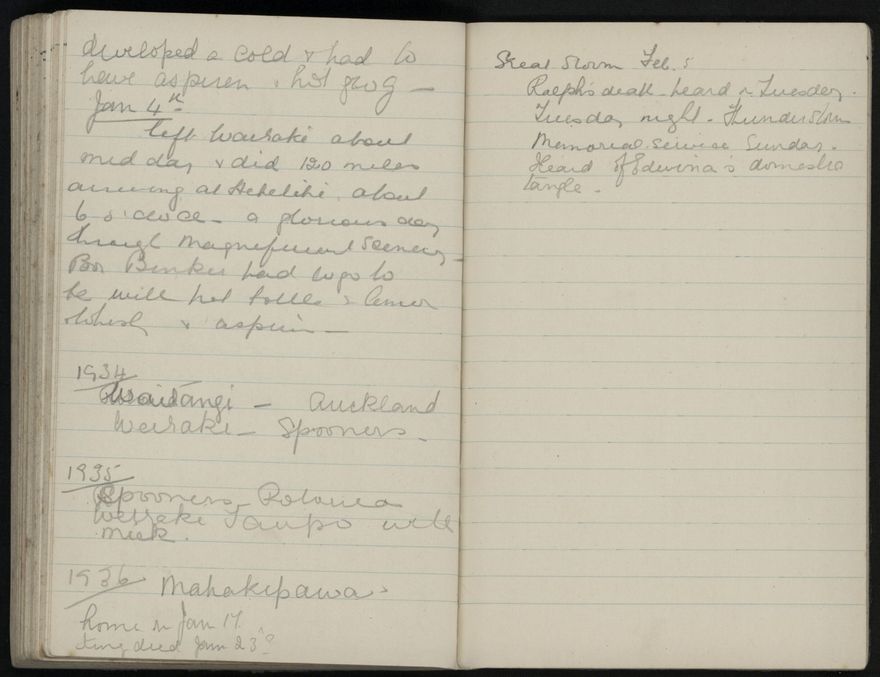 developed a cold & had to
have aspiren & hot grog —
Jan 4th
left Wairaki about
mid day & did 120 miles
arriving at Hekelihi about
6 o'clock — a glorious day
through magnificent scenery —
Poor Binkie had to go to
be with hot bottle & lemon
whisky & aspirin —
1934
Waitangi — Auckland
Weiraki — Spooners —
1935
Spooners — Rotorua
Weiraki Taupo with
Meek.
1936 Mahakipawa
home on Jan 17.
King died Jan 23rd
Great Storm Feb. 5
Ralph's death — heard on Tuesday.
Tuesday night — Thunderstorm
Memorial service Sunday.
Heard of Edwina's domestic
tangle —